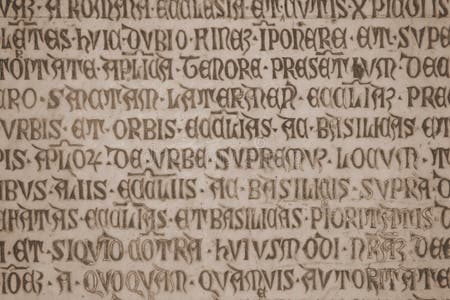 A · ROMANA · ECCLESIA · ET · CVTIS · X
LETES · HVIC · DVBIO · FINEZ · IPONERE · ET · SVP
TORITATE · APLICA · TENORE · PRESETIVM · DECE
RO · SANCTAM · LATERANEN · ECCLIAZ · PRE
VRBIS · ET · ORBIS · ECCLIAS · AC · BASILICAS · ET
PIS · APLOZ · DE · VRBE · SVPREMVZ · LOCVM · T
IBVS · ALIIS · ECCLIIS · AC · BASILICIS · SVPRA · D
ERATAS · ECCLIAS · ET BASILICAS · PIORITATIS · D
I · ET · SIQVID COTRA · HVIVSMODI · NRAZ · DE
A · QVOQVAM · QVAMVIS · AVTORITATE